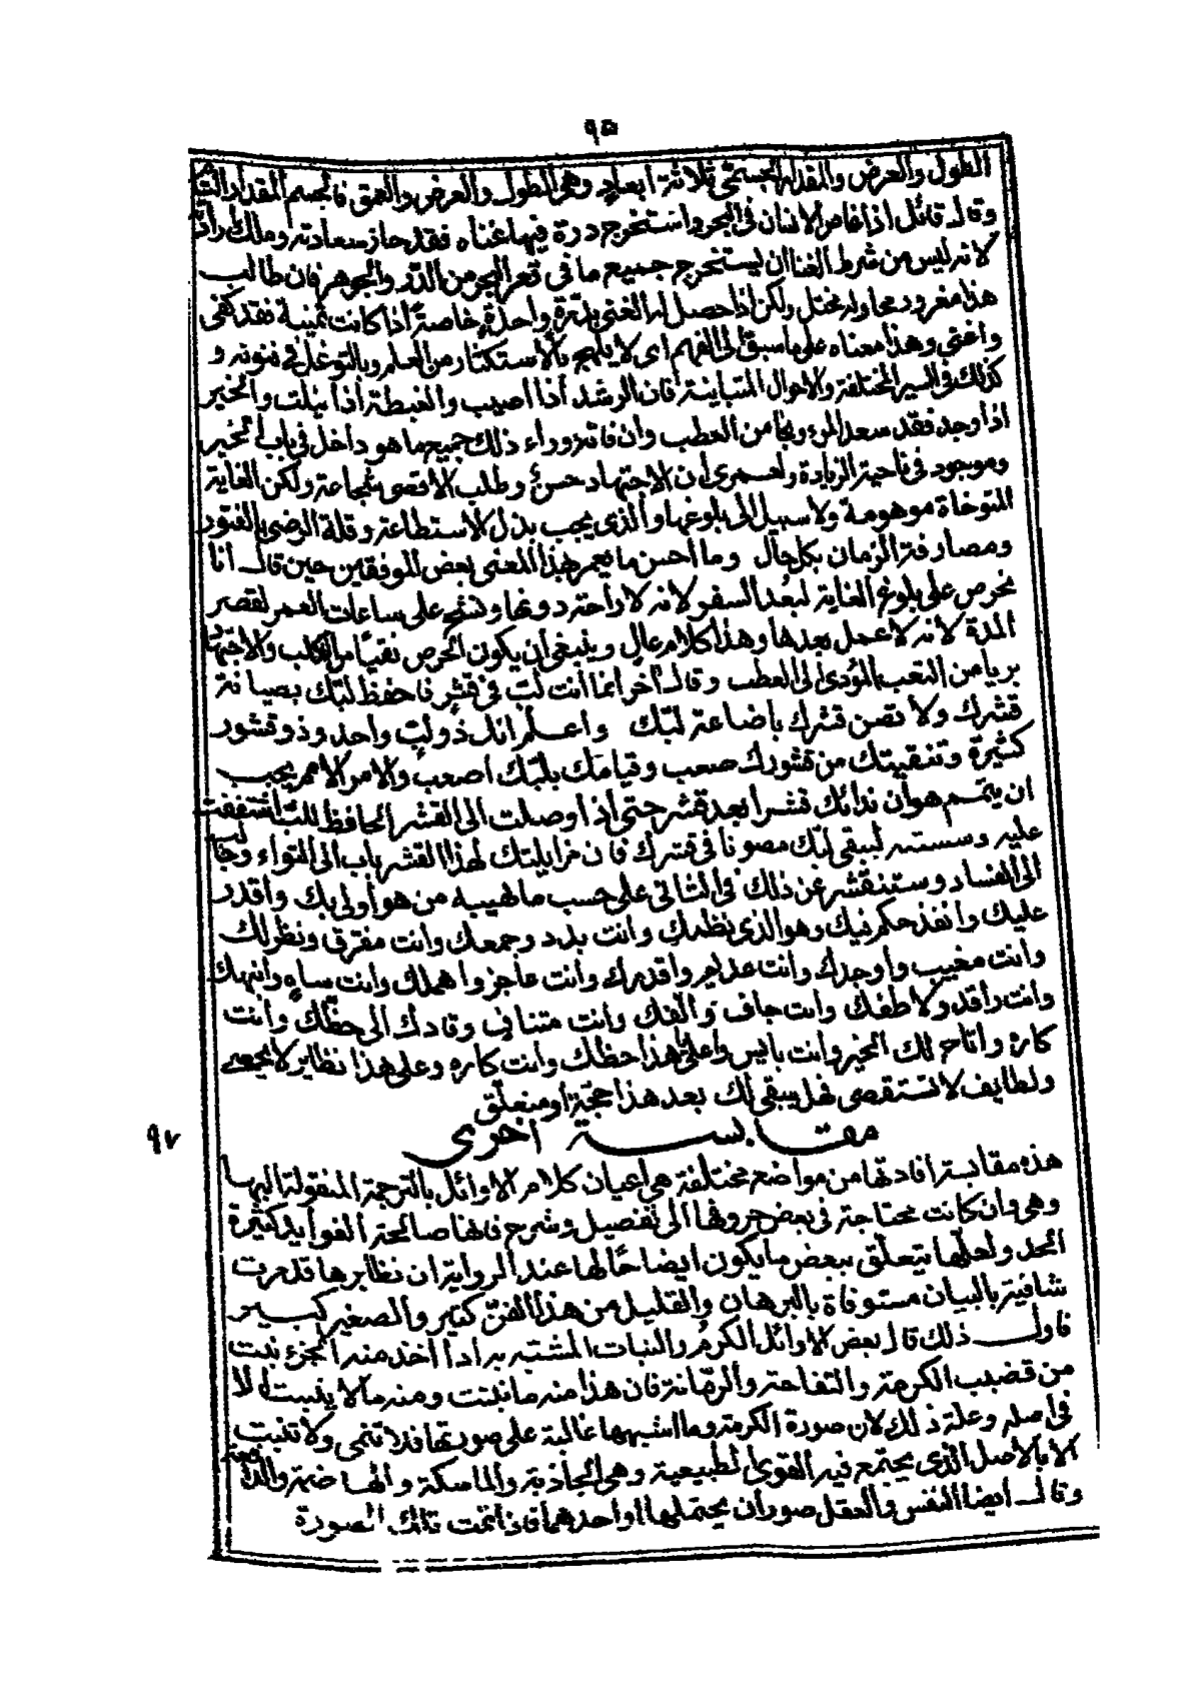 ٩٥
الطول والعرض والمقدار الجسمي ثلاثة أبعاد وهي الطول والعرض والعمق فالجسم المقدار التام
وقال قائل اذا غاص الانسان في البحر واستخرج درة فيها غناه فقد حاز سعادته وملك
لانه ليس من شرط الغنا ان يستخرج جميع ما في قعر البحر من الدّر والجوهر فان طالب
هذا مغرور ومحاوله مختل ولكن اذا حصل له الغنى بدرّة واحدة خاصةً اذا كانت ثمينة فقد كفى
واغنى وهذا معناه على ما سبق الى الفهم اى لا يلهج بالاستكثار من العلم وبالتوغل في فنونه و
كذلك في السير المختلفة والاحوال المتباينة فان الرشد اذا اصيب والغبطة اذا نيلت والخير
اذا وجد فقد سعد المرء ونجا من العطب وان فاته وراء ذلك جميع ما هو داخل في باب الخير
وموجود في ناحية الزيادة ولعمرى ان الاجتهاد حسن وطلب الاقصى شجاعة ولكن الغاية
المتوخاة موهومة ولا سبيل الى بلوغها والذى يجب بذل الاستطاعة وقلة الرضى بالفتور
ومصارفة الزمان بكل حال وما احسن ما هذا المعنى بعض الموفقين حين قال انا
نحرص على بلوغ الغاية لبعد السفر لانه لا راحة دونها ونشح على ساعات العمر لقصر
المدة لانه لا عمل بعدها وهذا كلام عال وينبغى ان يكون الحرص نقيًا من الكلب والاجتهاد
بريا من التعب المؤدى الى العطب وقال آخر انما أنت لبّ في قشر فاحفظ لبّك بصيانة
قشرك ولا تصن قشرك باضاعة لبّك واعلم انك ذو لبّ واحد وذو قشور
كثيرة وتنقيتك من قشورك صعب وقيامك بلبّك اصعب والامر الامم يجب
ان يتمم هو أن قشرا بعد قشر حتى اذا وصلت الى القشر الحافظ للبّ اشفقت
عليه وسسته ليبقى لبّك مصونا في قشرك فان مزايلتك لهذا القشر باب الى التواء
الى الفساد وستنقشر عن ذلك في الثاني على حسب ما يهيبه من هو أولى بك وأقدر
عليك وانفذ حكم فيك وهو الذى نظمك وانت بدد وجمعك وانت مفرق ونظر لك
وانت مغيب وأوجدك وانت عديم واقدرك وأنت عاجز وامهلك وانت ساهٍ وأنبهك
وانت راقد ولاطفك وانت جاف وألّفك وانت متنافي وقادك الى حظّك وأنت
كاره واتاح لك الخير وانت بائس هذا حظك وانت كاره وعلى هذا نظاير لا تحصى
ولطايف لا تستقصى فهل يبقى لك بعد هذا حجة أو متعلّق
مقابسة اخرى
٩٧
هذه مقابسة أفادتها من مواضع مختلفة هي أعيان كلام الاوائل بالترجمة المنقولة الينا
وهي وان كانت محتاجة في بعض حروفها الى تفصيل وشرح فانها صالحة الفوايد كثيرة
الجد ولعلها تتعلق ببعض ما يكون ايضاحًا لها عند الرواية ان نظايرها قد مرت
شافية بالبيان مستوفاة بالبرهان والقليل من هذا الفن كثير والصغير كبير
فاول ذلك قال بعض الاوائل الكرم والنبات المشتبه به اذا اخذ منه الجزء نبت
من قضيب الكرمة والتفاحة والرمّانة فان هذا منه ما نبتت ومنه ما لا ينبت الا
في اصله وعلة ذلك لان صورة الكرمة وما اشبهها غالبة على صورتها فلا تنمى ولا تنبت
الا بالاصل الذى يجتمع فيه القوى الطبيعية وهى الجاذبة والماسكة والهاضمة والدافعة
وقال أيضا النفس والعقل صور أن يحتملها او احدهما فاذا اتمت تلك الصورة